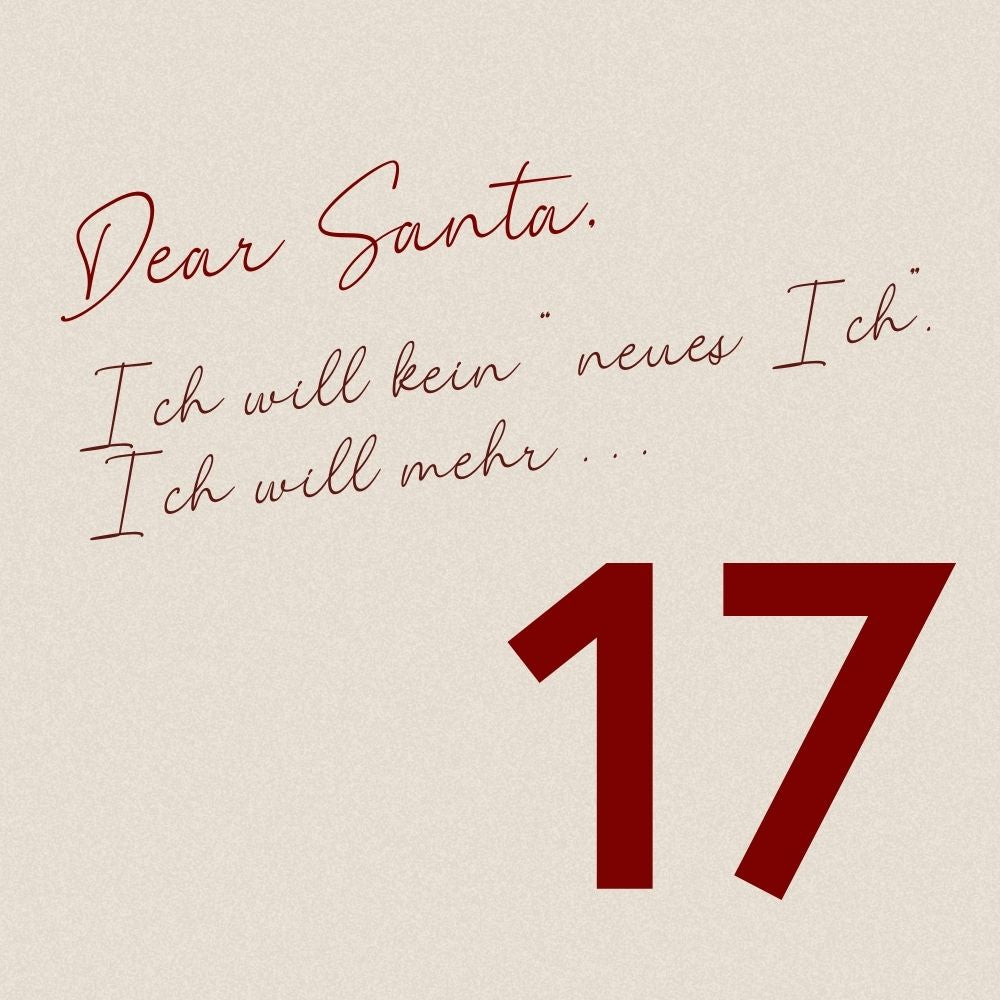 Dear Santa,
Ich will kein "neues Ich".
Ich will mehr ...
17